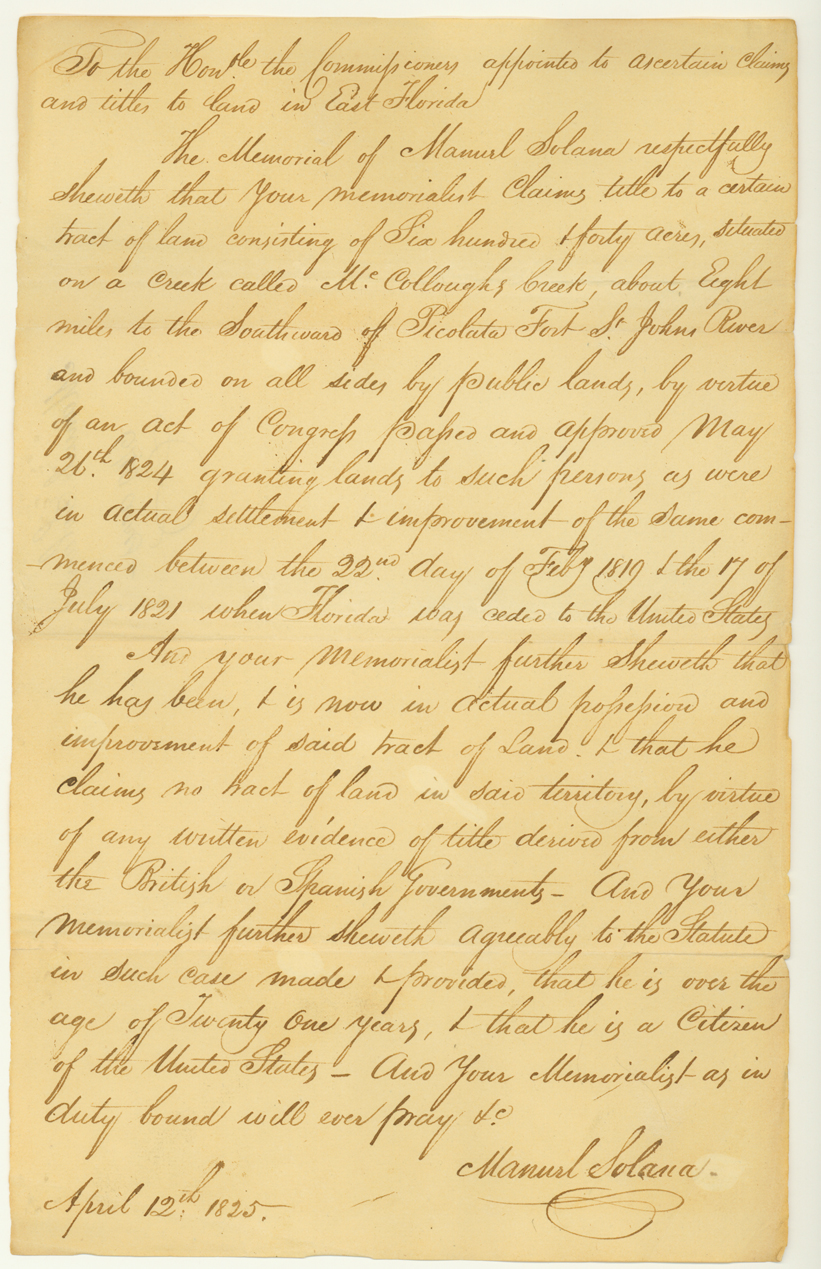 To the Honble the Commissioners appointed to ascertain Claims
and titles to land in East Florida
The Memorial of Manuel Solana respectfully
sheweth that Your memorialist Claims title to a certain
tract of land consisting of Six hundred & forty acres, situated
on a Creek called Mc Colloughs Creek, about Eight
miles to the Southward of Picolata Fort St Johns River
and bounded on all sides by public lands, by virtue
of an act of Congress passed and approved May
26th 1824 granting lands to such persons as were
in actual settlement & improvement of the same com-
menced between the 22nd day of Feby 1819 & the 17 of
July 1821 when Florida was ceded to the United States
And your Memorialist further Sheweth that
he has been, & is now in actual possession and
improvement of said tract of Land. & that he
claims no tract of land in said territory, by virtue
of any written evidence of title derived from either
the British or Spanish Governments - And Your
Memorialist further sheweth agreeably to the Statute
in such case made & provided, that he is over the
age of Twenty One years, & that he is a Citizen
of the United States - And Your Memorialist as in
duty bound will ever pray &c
Manuel Solana -
April 12th 1825.